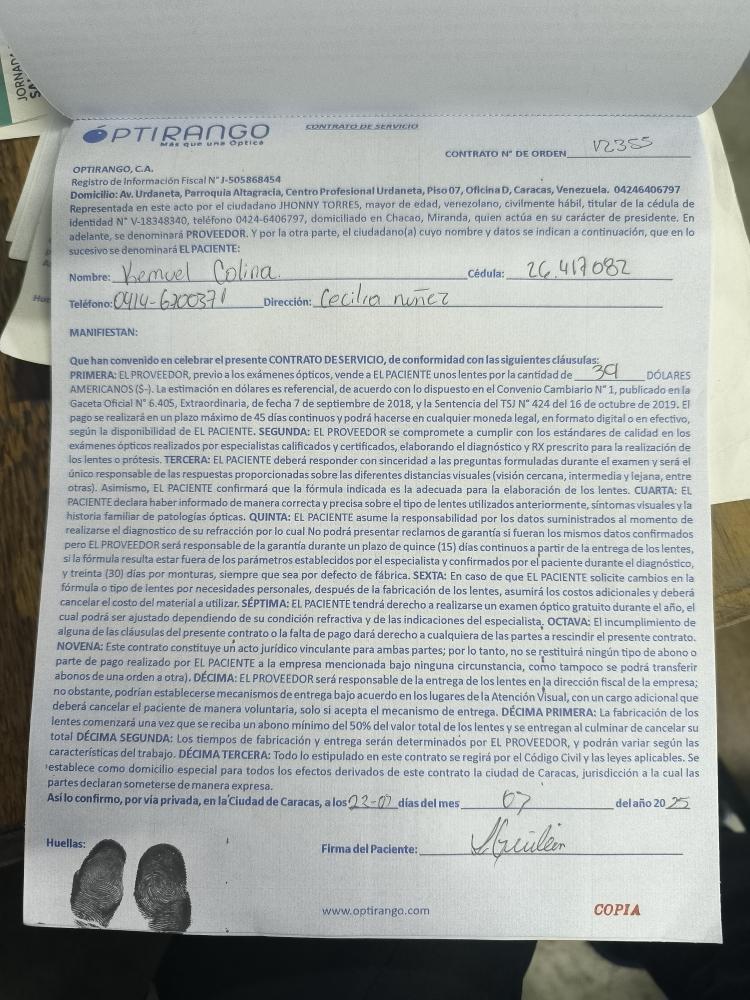 JORNADA
OPTIRANGO
Más que una Óptica
CONTRATO DE SERVICIO
CONTRATO N° DE ORDEN
OPTIRANGO, C.A.
Registro de Información Fiscal N° J-505868454
Domicilio: Av. Urdaneta, Parroquia Altagracia, Centro Profesional Urdaneta, Piso 07, Oficina D, Caracas, Venezuela. 04246406797
Representada en este acto por el ciudadano JHONNY TORRES, mayor de edad, venezolano, civilmente hábil, titular de la cédula de
identidad N° V-18348340, teléfono 0424-6406797, domiciliado en Chacao, Miranda, quien actúa en su carácter de presidente. En
adelante, se denominará PROVEEDOR. Y por la otra parte, el ciudadano(a) cuyo nombre y datos se indican a continuación, que en lo
sucesivo se denominará EL PACIENTE:
Nombre: Kemuel Colina. Cédula: 26.417082
Teléfono: 0414-6200371 Dirección: Cecilia nuñez
MANIFIESTAN:
Que han convenido en celebrar el presente CONTRATO DE SERVICIO, de conformidad con las siguientes cláusulas:
PRIMERA: EL PROVEEDOR, previo a los exámenes ópticos, vende a EL PACIENTE unos lentes por la cantidad de 39 DÓLARES
AMERICANOS ($-). La estimación en dólares es referencial, de acuerdo con lo dispuesto en el Convenio Cambiario N° 1, publicado en la
Gaceta Oficial N° 6.405, Extraordinaria, de fecha 7 de septiembre de 2018, y la Sentencia del TSJ N° 424 del 16 de octubre de 2019. El
pago se realizará en un plazo máximo de 45 días continuos y podrá hacerse en cualquier moneda legal, en formato digital o en efectivo,
según la disponibilidad de EL PACIENTE. SEGUNDA: EL PROVEEDOR se compromete a cumplir con los estándares de calidad en los
exámenes ópticos realizados por especialistas calificados y certificados, elaborando el diagnóstico y RX prescrito para la realización de
los lentes o prótesis. TERCERA: EL PACIENTE deberá responder con sinceridad a las preguntas formuladas durante el examen y será el
único responsable de las respuestas proporcionadas sobre las diferentes distancias visuales (visión cercana, intermedia y lejana, entre
otras). Asimismo, EL PACIENTE confirmará que la fórmula indicada es la adecuada para la elaboración de los lentes. CUARTA: EL
PACIENTE declara haber informado de manera correcta y precisa sobre el tipo de lentes utilizados anteriormente, síntomas visuales y la
historia familiar de patologías ópticas. QUINTA: EL PACIENTE asume la responsabilidad por los datos suministrados al momento de
realizarse el diagnostico de su refracción por lo cual No podrá presentar reclamos de garantía si fueran los mismos datos confirmados
pero EL PROVEEDOR será responsable de la garantía durante un plazo de quince (15) días continuos a partir de la entrega de los lentes,
si la fórmula resulta estar fuera de los parámetros establecidos por el especialista y confirmados por el paciente durante el diagnóstico,
y treinta (30) días por monturas, siempre que sea por defecto de fábrica. SEXTA: En caso de que EL PACIENTE solicite cambios en la
fórmula o tipo de lentes por necesidades personales, después de la fabricación de los lentes, asumirá los costos adicionales y deberá
cancelar el costo del material a utilizar. SÉPTIMA: EL PACIENTE tendrá derecho a realizarse un examen óptico gratuito durante el año, el
cual podrá ser ajustado dependiendo de su condición refractiva y de las indicaciones del especialista. OCTAVA: El incumplimiento de
alguna de las cláusulas del presente contrato o la falta de pago dará derecho a cualquiera de las partes a rescindir el presente contrato.
NOVENA: Este contrato constituye un acto jurídico vinculante para ambas partes; por lo tanto, no se restituirá ningún tipo de abono o
parte de pago realizado por EL PACIENTE a la empresa mencionada bajo ninguna circunstancia, como tampoco se podrá transferir
abonos de una orden a otra). DÉCIMA: EL PROVEEDOR será responsable de la entrega de los lentes en la dirección fiscal de la empresa;
no obstante, podrían establecerse mecanismos de entrega bajo acuerdo en los lugares de la Atención Visual, con un cargo adicional que
deberá cancelar el paciente de manera voluntaria, solo si acepta el mecanismo de entrega. DÉCIMA PRIMERA: La fabricación de los
lentes comenzará una vez que se reciba un abono mínimo del 50% del valor total de los lentes y se entregan al culminar de cancelar su
total DÉCIMA SEGUNDA: Los tiempos de fabricación y entrega serán determinados por EL PROVEEDOR, y podrán variar según las
características del trabajo. DÉCIMA TERCERA: Todo lo estipulado en este contrato se regirá por el Código Civil y las leyes aplicables. Se
establece como domicilio especial para todos los efectos derivados de este contrato la ciudad de Caracas, jurisdicción a la cual las
partes declaran someterse de manera expresa.
Así lo confirmo, por vía privada, en la Ciudad de Caracas, a los 23-07 días del mes 07 del año 20 25
Huellas:
Firma del Paciente:
www.optirango.com
COPIA